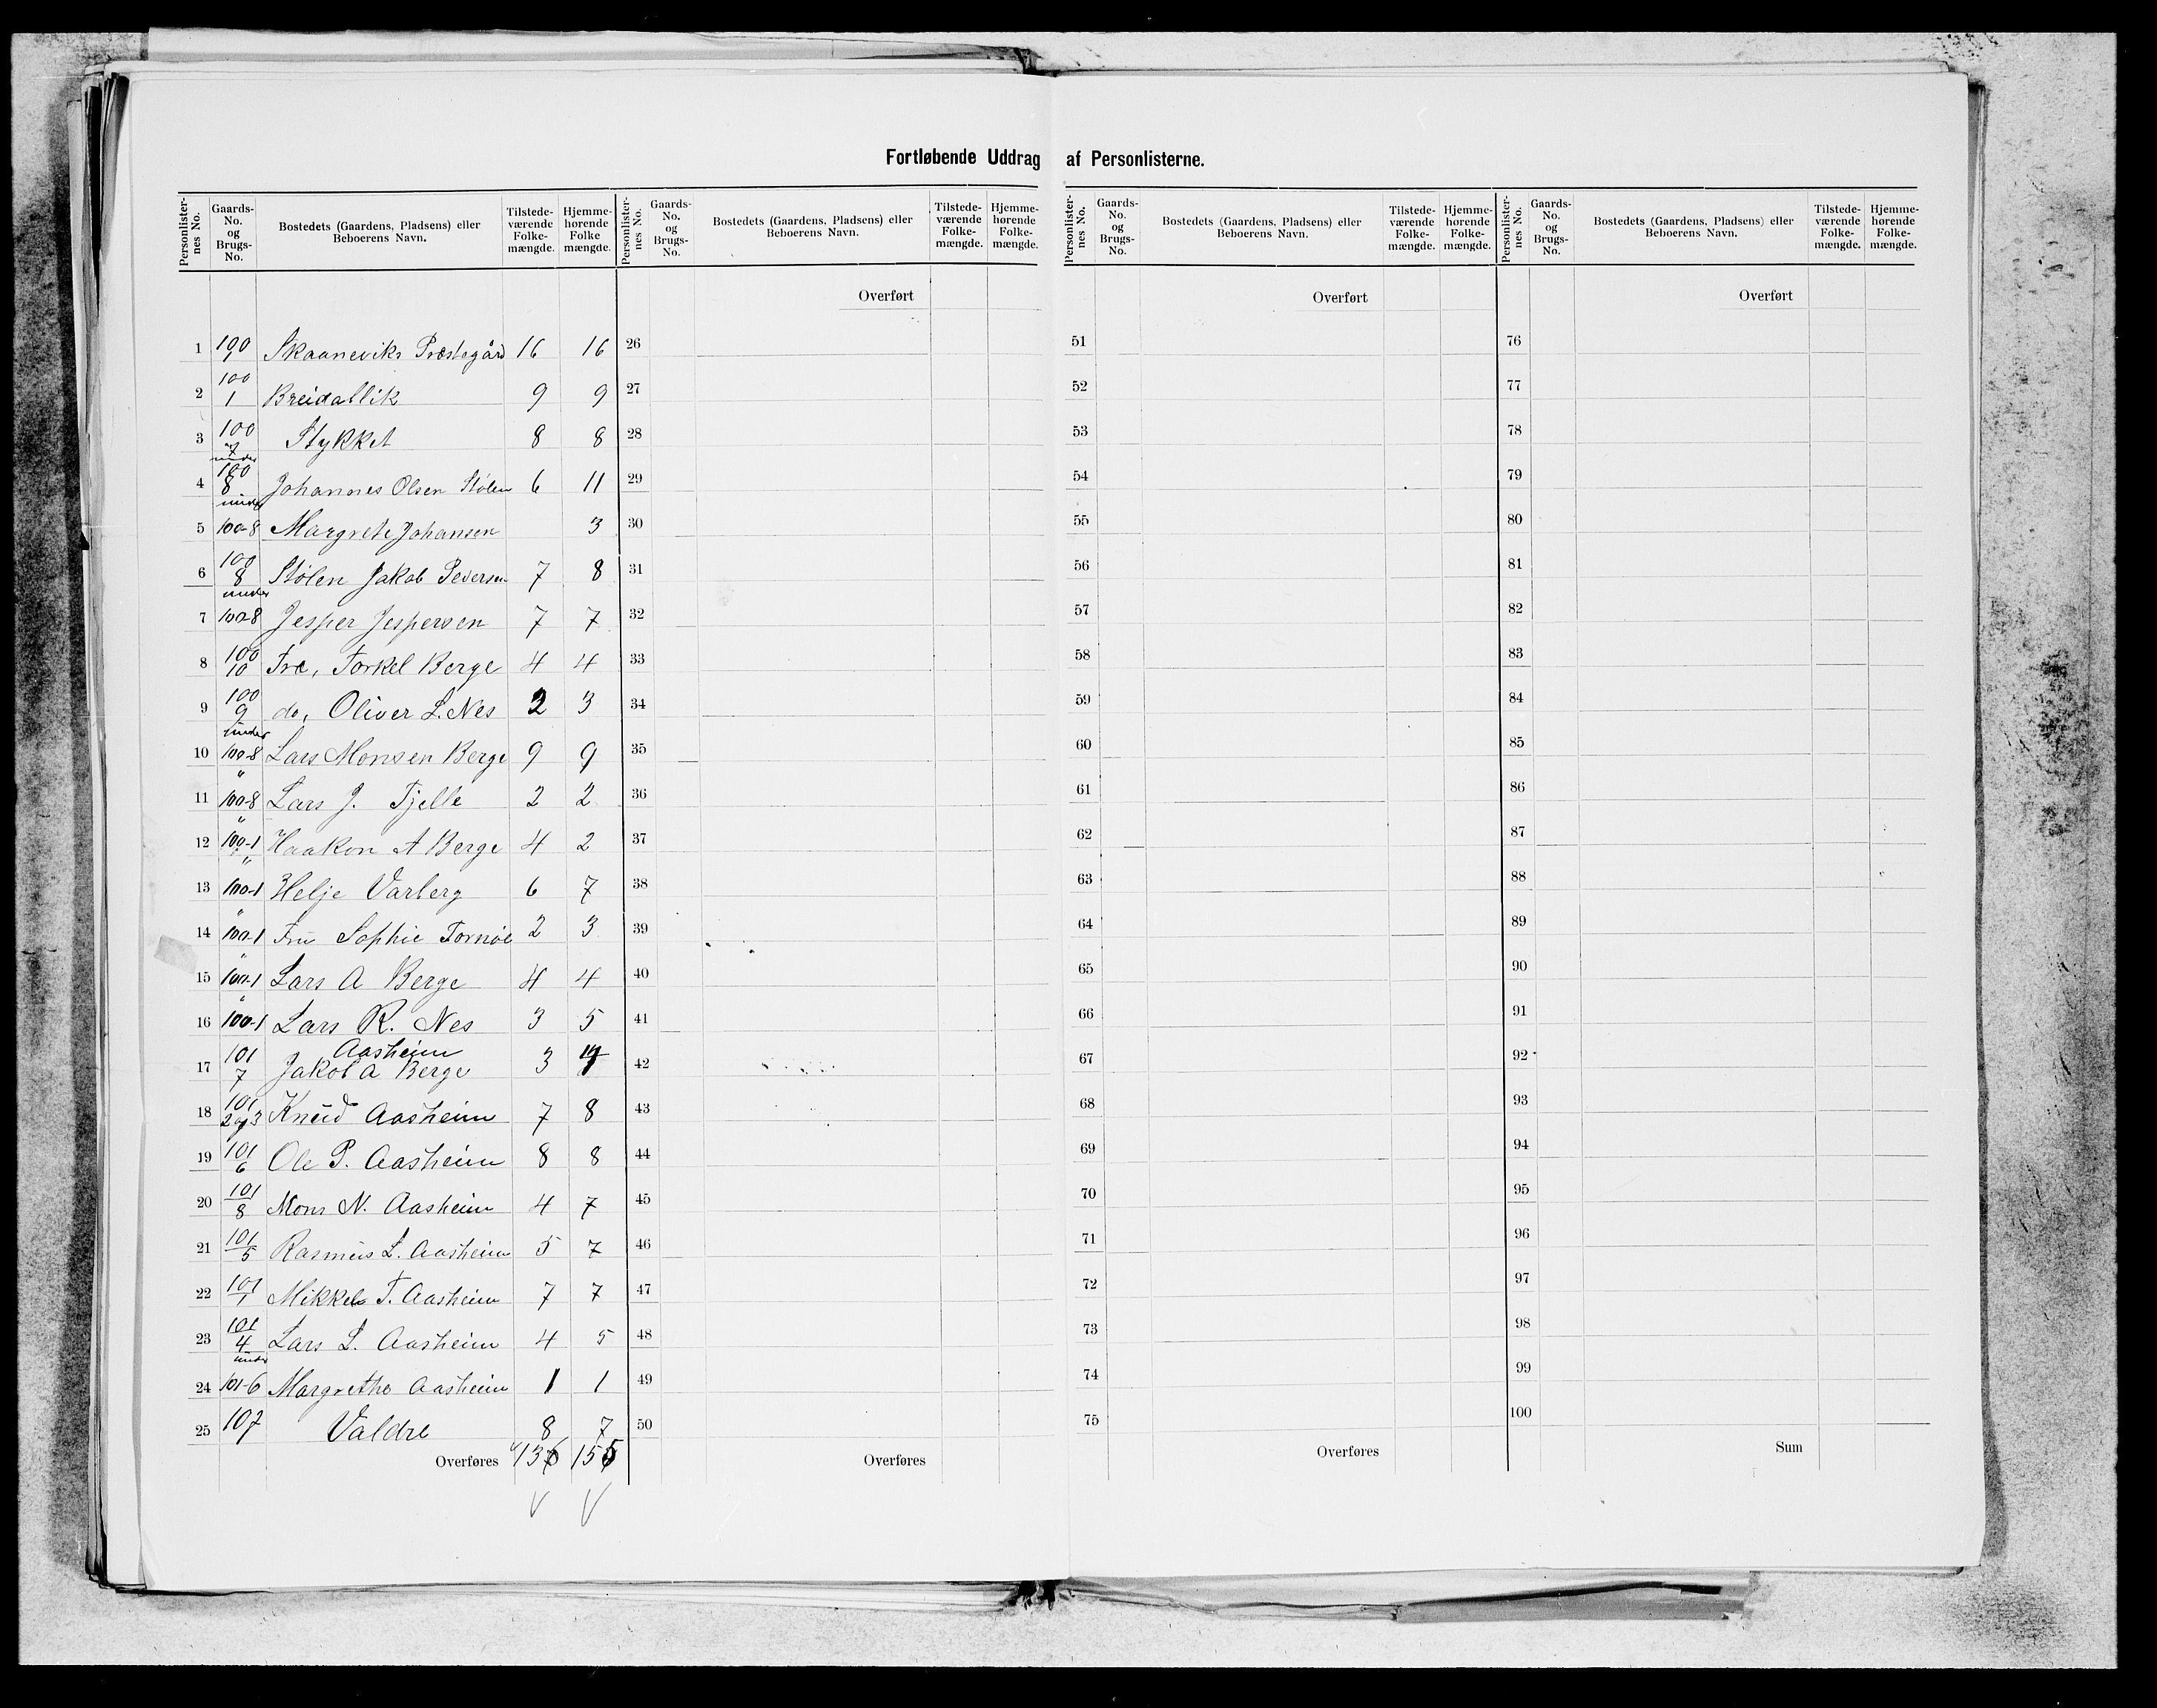 Fortløbende Uddrag af Personlisterne.
Personlister-nes No. | Gaards-No. og Brugs-No. | Bostedets (Gaardens, Pladsens) eller Beboerens Navn. | Tilstede-værende Folke-mængde. | Hjemme-hørende Folke mængde.
Personlister-nes No. | Gaards-No. og Brugs-No. | Bostedets (Gaardens, Pladsens) eller Beboerens Navn. | Tilstede-værende Folke-mængde. | Hjemme-hørende Folke-mængde.
Personlister-nes No. | Gaards-No. og Brugs-No. | Bostedets (Gaardens, Pladsens) eller Beboerens Navn. | Tilstede-værende Folke-mængde. | Hjemme-hørende Folke-mængde.
Personlister-nes No. | Gaards-No. og Brugs-No. | Bostedets (Gaardens, Pladsens) eller Beboerens Navn. | Tilstede-værende Folke-mængde. | Hjemme-hørende Folke-mængde.
Overført Overført Overført
1 100 Skaaneviks Præstegård 16 16 26 51 76
2 100 1 Breidablik 9 9 27 52 77
3 100 Stykket 8 8 28 53 78
under
4 100 8 Johannes Olsen Stølen 6 11 29 54 79
under
5 100-8 Margrete Johansen 3 30 55 80
6 100 8 Stølen Jakob Pedersen 7 8 31 56 81
under
7 100-8 Jesper Jespersen 7 7 32 57 82
8 100 10 Træ, Torkel Berge 4 4 33 58 83
9 100 9 do, Oliver L. Nes 2 3 34 59 84
under
10 100-8 Lars Monsen Berge 9 9 35 60 85
"
11 100-8 Lars J. Tjelle 2 2 36 61 86
"
12 100-1 Haakon A Berge 4 2 37 62 87
"
13 100-1 Helje Varberg 6 7 38 63 88
"
14 100-1 Fru Sophie Tornøe 2 3 39 64 89
"
15 100-1 Lars A Berge 4 4 40 65 90
"
16 100-1 Lars R. Nes 3 5 41 66 91
Aasheim
17 101 7 Jakob A Berge 3 42 67 92
18 101 2 og 3 Knud Aasheim 7 8 43 68 93
19 101 6 Ole P. Aasheim 8 8 44 69 94
20 101 8 Mons N. Aasheim 4 7 45 70 95
21 101 5 Rasmus L. Aasheim 5 7 46 71 96
22 101 1 Mikkel T. Aasheim 7 7 47 72 97
23 101 4 Lars L. Aasheim 4 5 48 73 98
under
24 101-6 Margrethe Aasheim 1 1 49 74 99
25 107 Valdre 8 7 50 75 100
Overføres 136 155 Overføres Overføres Sum